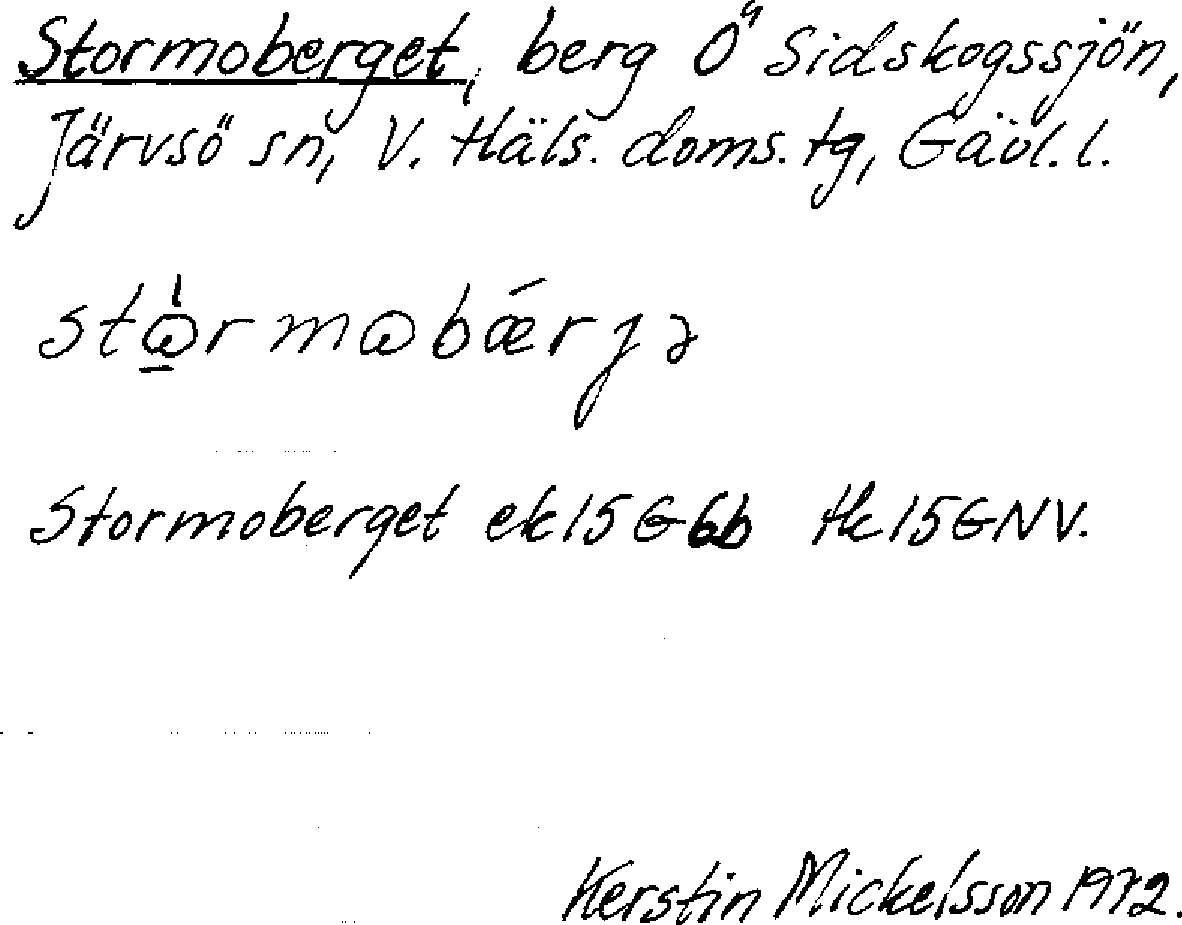 Stormoberget, berg Ö Sidskogssjön,
Järvsö sn, V. Häls. doms. tg, Gävl. l.
stὼ̲rmωbǽrɟə
Stormoberget ek 15 G 6b tk 15 G NV.
Kerstin Mickelsson 1972.